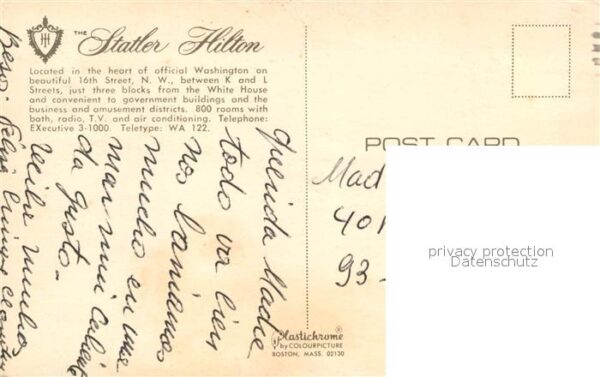 THE Statler Hilton
Located in the heart of official Washington on
beautiful 16th Street, N. W., between K and L
Streets, just three blocks from the White House
and convenient to government buildings and the
business and amusement districts. 800 rooms with
bath, radio, T.V. and air conditioning. Telephone:
EXecutive 3-1000. Teletype: WA 122.
Querida Madre
todo va bien
nos bañamos
mucho en una
mar muy calien
da gusto.
recibe muchos
Besos
POST CARD
Mad
401
93-
privacy protection
Datenschutz
Plastichrome®
by COLOURPICTURE
BOSTON, MASS. 02130